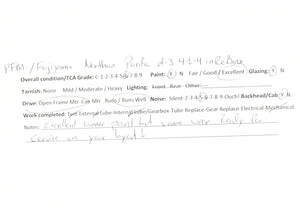 PFM / Fujiyama Northern Pacific A-3 4-8-4 in Re Box
Overall condition/TCA Grade: C-1-2-3-4-5-6-7-8-9 Paint: Y N Fair / Good / Excellent / Glazing: Y N
Tarnish: None Mild / Moderate / Heavy Lighting: Front- Rear- Other:
Drive: Open Frame Mtr Can Mtr. Runs / Runs Well Noise: Silent-2-3-4-5-6-7-8-9-Ouch! Backhead/Cab: Y N
Work completed: Lube External Lube Internal Lube/Gearbox-Tube Replace Gear Replace Electrical-Mechanical
Notes: Excellent runner paint but some wear Ready for
Service on your layout!